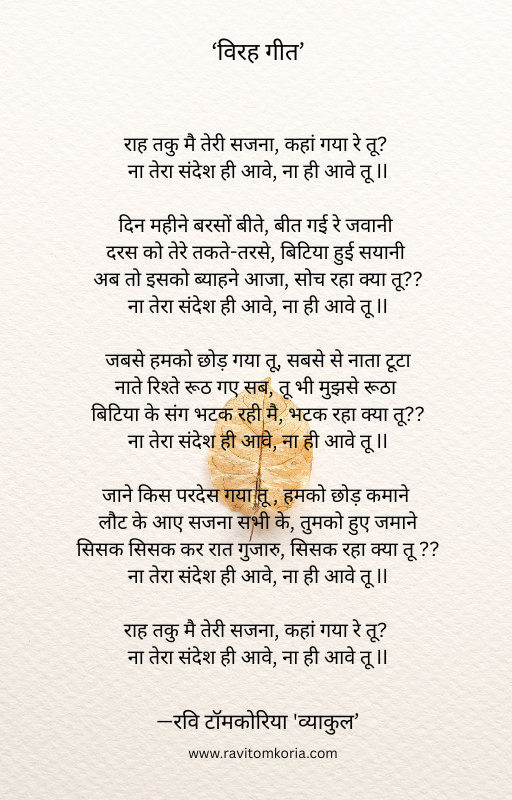 ‘विरह गीत’
राह तकु मै तेरी सजना, कहां गया रे तू?
ना तेरा संदेश ही आवे, ना ही आवे तू ll
दिन महीने बरसों बीते, बीत गई रे जवानी
दरस को तेरे तकते-तरसे, बिटिया हुई सयानी
अब तो इसको ब्याहने आजा, सोच रहा क्या तू??
ना तेरा संदेश ही आवे, ना ही आवे तू ll
जबसे हमको छोड़ गया तू, सबसे से नाता टूटा
नाते रिश्ते रूठ गए सब, तू भी मुझसे रूठा
बिटिया के संग भटक रही मै, भटक रहा क्या तू??
ना तेरा संदेश ही आवे, ना ही आवे तू ll
जाने किस परदेस गया तू , हमको छोड़ कमाने
लौट के आए सजना सभी के, तुमको हुए जमाने
सिसक सिसक कर रात गुजारु, सिसक रहा क्या तू ??
ना तेरा संदेश ही आवे, ना ही आवे तू ll
राह तकु मै तेरी सजना, कहां गया रे तू?
ना तेरा संदेश ही आवे, ना ही आवे तू ll
—रवि टॉमकोरिया 'व्याकुल’
www.ravitomkoria.com